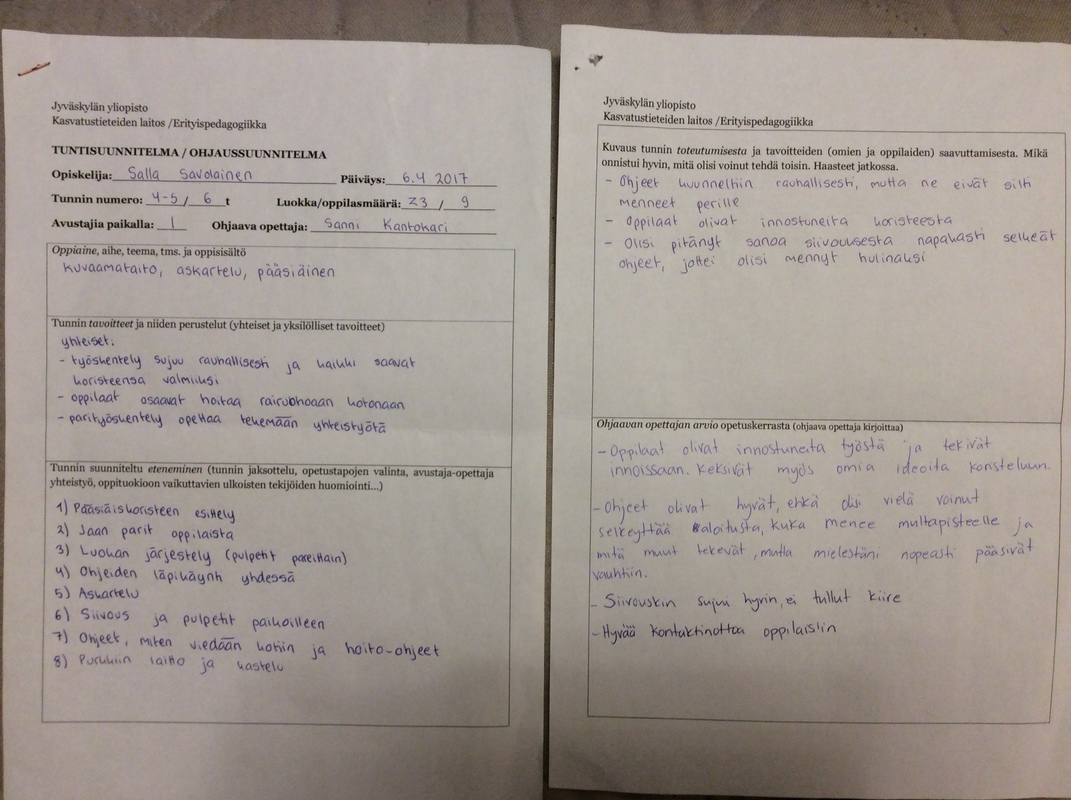 Jyväskylän yliopisto
Kasvatustieteiden laitos /Erityispedagogiikka
TUNTISUUNNITELMA / OHJAUSSUUNNITELMA
Opiskelija: Salla Savolainen Päiväys: 6.4 2017
Tunnin numero: 4-5 / 6 t Luokka/oppilasmäärä: Z3 / 9
Avustajia paikalla: 1 Ohjaava opettaja: Sanni Kantokari
Oppiaine, aihe, teema, tms. ja oppisisältö
Kuvaamataito, askartelu, pääsiäinen
Tunnin tavoitteet ja niiden perustelut (yhteiset ja yksilölliset tavoitteet)
yhteiset:
- työskentely sujuu rauhallisesti ja kaikki saavat
koristeensa valmiiksi
- oppilaat osaavat hoitaa rairuohoaan kotonaan
- parityöskentely opettaa tekemään yhteistyötä
Tunnin suunniteltu eteneminen (tunnin jaksottelu, opetustapojen valinta, avustaja-opettaja
yhteistyö, oppituokioon vaikuttavien ulkoisten tekijöiden huomiointi...)
1) Pääsiäiskoristeen esittely
2) Jaan parit oppilaista
3) Luokan järjestely (pulpetit pareittain)
4) Ohjeiden läpikäynti yhdessä
5) Askartelu
6) Siivous ja pulpetit paikoilleen
7) Ohjeet, miten viedään kotiin ja hoito-ohjeet
8) Purkkiin laitto ja kastelu
Jyväskylän yliopisto
Kasvatustieteiden laitos /Erityispedagogiikka
Kuvaus tunnin toteutumisesta ja tavoitteiden (omien ja oppilaiden) saavuttamisesta. Mikä
onnistui hyvin, mitä olisi voinut tehdä toisin. Haasteet jatkossa.
- Ohjeet kuunneltiin rauhallisesti, mutta ne eivät silti
menneet perille
- Oppilaat olivat innostuneita koristeesta
- Olisi pitänyt sanoa siivouksesta napakasti selkeät
ohjeet, jottei olisi mennyt hulinaksi
Ohjaavan opettajan arvio opetuskerrasta (ohjaava opettaja kirjoittaa)
- Oppilaat olivat innostuneita työstä ja tekivät
innoissaan. Keksivät myös omia ideoita koristeluun.
- Ohjeet olivat hyvät, ehkä olisi vielä voinut
selkeyttää aloitusta, kuka menee multapisteelle ja
mitä muut tekevät, mutta mielestäni nopeasti pääsivät
vauhtiin.
- Siivouskin sujui hyvin, ei tullut kiire
- Hyvää kontaktinottoa oppilaisiin